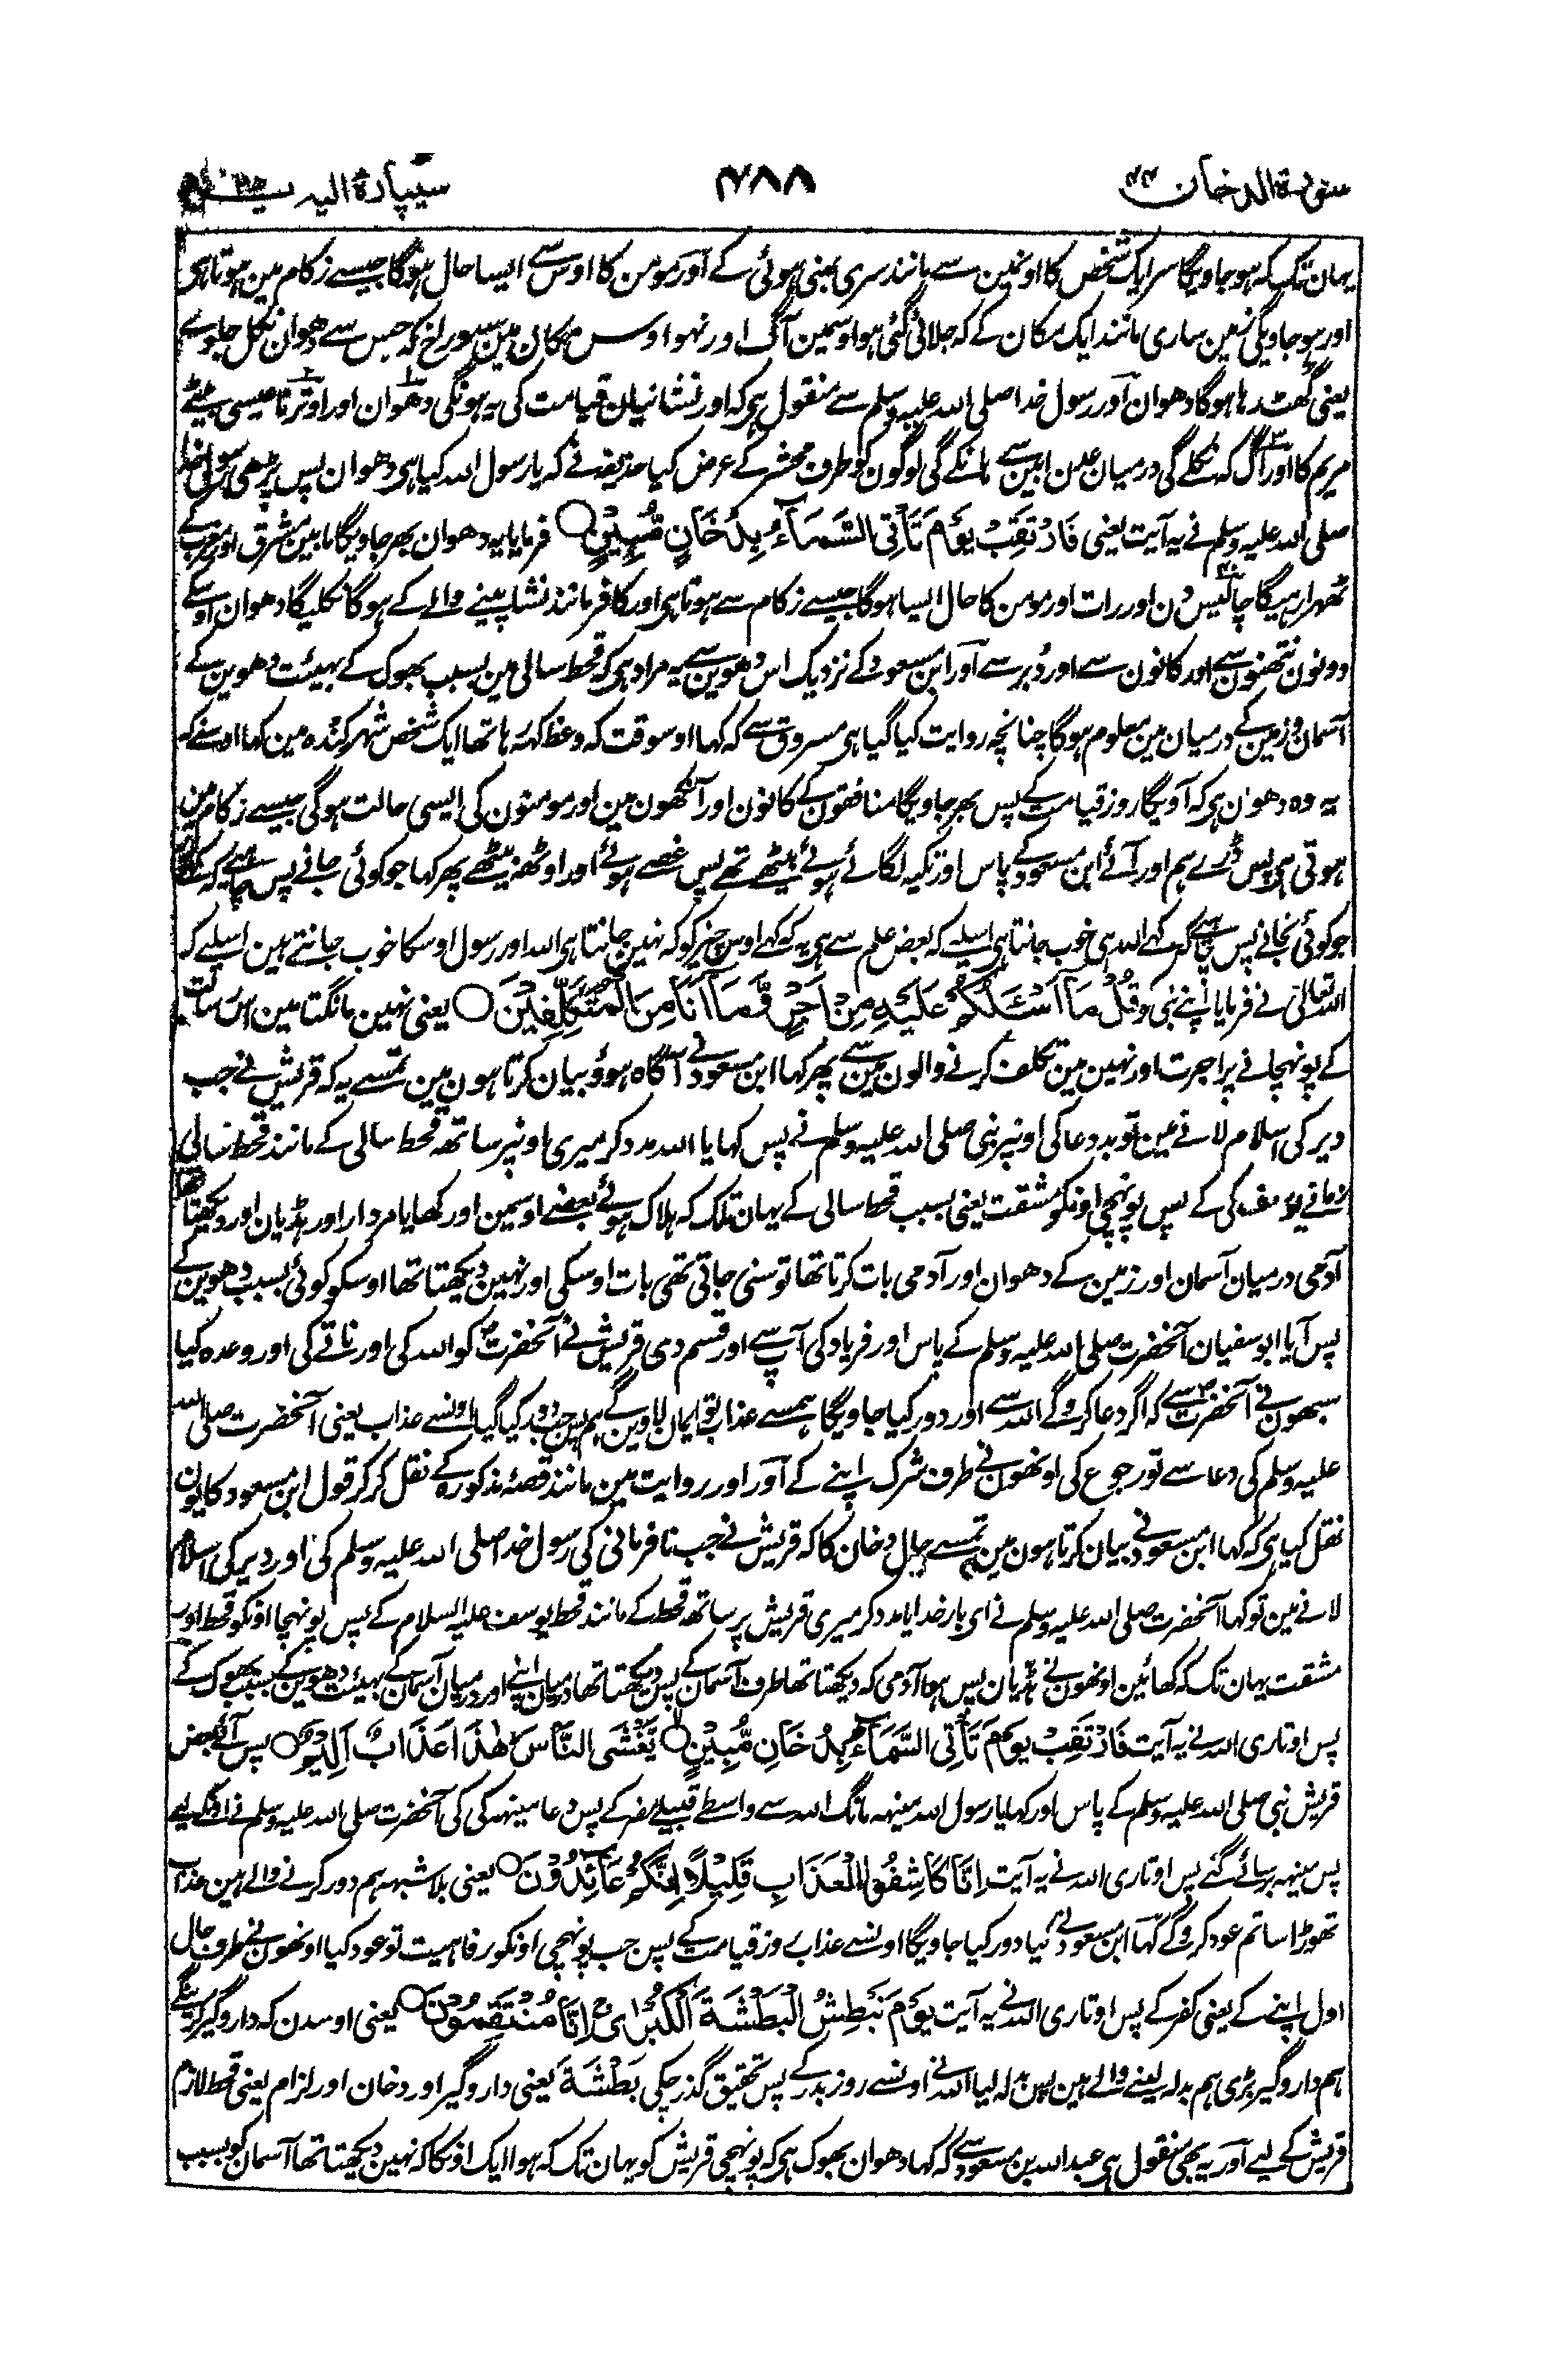 سورة الدخان ۴۴ ۷۸۸ سیپارۂ الیہ یرد
یہان تک کہ ہو جاویگا سر ایک شخص کا اونمین سے مانند سری بھنی ہوئی کے اور مومن کا اوس سے ایسا حال ہوگا جیسے زکام مین ہوتا ہی
اور ہو جاویگی زمین ساری مانند ایک مکان کے کہ جلائی گئی ہو اوسمین آگ اور نہو اوس مکان مین سوراخ کہ جس سے دھوان نکل جاوے
یعنی گھٹ رہا ہوگا دھوان اور رسول خدا صلی اللہ علیہ وسلم سے منقول ہی کہ اور نشانیان قیامت کی یہ ہونگی دھوان اور اوترنا عیسی بیٹے
مریم کا اور آگ کہ نکلے گی درمیان عدن ابین سے ہانکے گی لوگون کو طرف محشر کے عرض کیا حذیفہ نے کہ یا رسول اللہ کیا ہی دھوان پس پڑھی رسول خدا
صلی اللہ علیہ وسلم نے یہ آیت یعنی فَارْتَقِبْ يَوْمَ تَأْتِي السَّمَاءُ بِدُخَانٍ مُّبِينٍ ○ فرمایا یہ دھوان بھر جاویگا مابین مشرق اور مغرب کے
ٹھہرا رہیگا چالیس دن اور رات اور مومن کا حال ایسا ہوگا جیسے زکام سے ہوتا ہی اور کافر مانند نشا پینے والے کے ہوگا نکلیگا دھوان اوسکے
دونون نتھنون سے اور کانون سے اور دُبر سے اور ابن مسعود کے نزدیک اس دھوین سے یہ مراد ہی کہ قحط سالی مین بسبب بھوک کے بہیئت دھوین کے
آسمان و زمین کے درمیان مین معلوم ہوگا چنانچہ روایت کیا گیا ہی مسروق سے کہ کہا اوسوقت کہ وعظ کہہ رہا تھا ایک شخص شہر کندہ مین کہا اوسنے کہ
یہ وہ دھوان ہی کہ آویگا روز قیامت کے پس بھر جاویگا منافقون کے کانون اور آنکھون مین اور مومنون کی ایسی حالت ہوگی جیسے زکام مین
ہوتی ہی پس ڈرے ہم اور آئے ابن مسعود کے پاس اور تکیہ لگائے ہوئے بیٹھے تھے پس غصے ہوئے اور اوٹھ بیٹھے پھر کہا جو کوئی جانے پس چاہیے کہ کہے
جو کوئی نجانے پس چاہیے کہ کہے اللہ ہی خوب جانتا ہی اسلیے کہ بعض علم سے ہی یہ کہ کہے اوس چیز کو کہ نہین جانتا ہی اللہ اور رسول اوسکا خوب جانتے ہین اسلیے کہ
اللہ تعالیٰ نے فرمایا اپنے نبی کو قُلْ مَا أَسْئَلُكُمْ عَلَيْهِ مِنْ أَجْرٍ وَّمَا أَنَا مِنَ الْمُتَكَلِّفِينَ ○ یعنی نہین مانگتا مین اس رسالت
کے پونہچانے پر اجرت اور نہین مین تکلف کرنے والون مین سے پھر کہا ابن مسعود نے آگاہ ہوؤ بیان کرتا ہون مین تمسے یہ کہ قریش نے جب
دیر کی اسلام لانے مین تو بد دعا کی اونپر نبی صلی اللہ علیہ وسلم نے پس کہا یا اللہ مدد کر میری اونپر ساتھ قحط سالی کے مانند قحط سالی
زمانے یوسف کی کے پس پونہچی اونکو مشقت یعنی بسبب قحط سالی کے یہان تلک کہ ہلاک ہوئے بعضے اوسمین اور کھایا مردار اور ہڈیان اور دیکھتا تھا
آدمی درمیان آسمان اور زمین کے دھوان اور آدمی بات کرتا تھا تو سنی جاتی تھی بات اوسکی اور نہین دیکھتا تھا اوسکو کوئی بسبب دھوین کے
پس آیا ابو سفیان آنحضرت صلی اللہ علیہ وسلم کے پاس اور فریاد کی آپ سے اور قسم دی قریش نے آنحضرت کو اللہ کی اور ناتے کی اور وعدہ کیا
سبھون نے آنحضرت سے کہ اگر دعا کروگے اللہ سے اور دور کیا جاویگا ہمسے عذاب تو ایمان لاوین گے ہم پس جب دور کیا گیا اونسے عذاب یعنی آنحضرت صلی اللہ
علیہ وسلم کی دعا سے تو رجوع کی اونھون نے طرف شرک اپنے کے اور اور روایت مین مانند قصۂ مذکورہ کے نقل کر کر قول ابن مسعود کا یون
نقل کیا ہی کہ کہا ابن مسعود نے بیان کرتا ہون مین تمسے حال دخان کا کہ قریش نے جب نافرمانی کی رسول خدا صلی اللہ علیہ وسلم کی اور دیر کی اسلام
لانے مین تو کہا آنحضرت صلی اللہ علیہ وسلم نے ای بار خدایا مدد کر میری قریش پر ساتھ قحط کے مانند قحط یوسف علیہ السلام کے پس پونہچا اونکو قحط اور
مشقت یہان تک کہ کھائین اونھون نے ہڈیان پس ہوا آدمی کہ دیکھتا تھا طرف آسمان کے پس دیکھتا تھا درمیان اپنے اور درمیان آسمان کے بہیئت دھوین کے بسبب بھوک کے
پس اوتاری اللہ نے یہ آیت فَارْتَقِبْ يَوْمَ تَأْتِي السَّمَاءُ بِدُخَانٍ مُّبِينٍ ○ يَّغْشَى النَّاسَ هٰذَا عَذَابٌ أَلِيمٌ ○ پس آئے بعض
قریش نبی صلی اللہ علیہ وسلم کے پاس اور کہا یا رسول اللہ مینہہ مانگ اللہ سے واسطے قبیلے مضر کے پس دعا مینہہ کی کی آنحضرت صلی اللہ علیہ وسلم نے اونکے لیے
پس مینہہ برسائے گئے پس اوتاری اللہ نے یہ آیت إِنَّا كَاشِفُوا الْعَذَابِ قَلِيلًا إِنَّكُمْ عَائِدُونَ ○ یعنی بلا شبہہ ہم دور کرنے والے ہین عذاب
تھوڑا سا تم عود کروگے کہا ابن مسعود نے کیا دور کیا جاویگا اونسے عذاب روز قیامت کے پس جب پونہچی اونکو رفاہیت تو عود کیا اونھون نے طرف حال
اول اپنے کے یعنی کفر کے پس اوتاری اللہ نے یہ آیت يَوْمَ نَبْطِشُ الْبَطْشَةَ الْكُبْرٰى إِنَّا مُنْتَقِمُونَ ○ یعنی اوسدن کہ داروگیر کرینگے
ہم داروگیر بڑی ہم بدلہ لینے والے ہین پس بدلہ لیا اللہ نے اونسے روز بدر کے پس تحقیق گذر چکی بَطْشَةَ یعنی داروگیر اور دخان اور لزام یعنی قحط لازم
قریش کے لیے اور یہ بھی منقول ہی عبداللہ بن مسعود سے کہ کہا دھوان بھوک ہی کہ پونہچی قریش کو یہان تک کہ ہوا ایک اونکا کہ نہین دیکھتا تھا آسمان کو بسبب